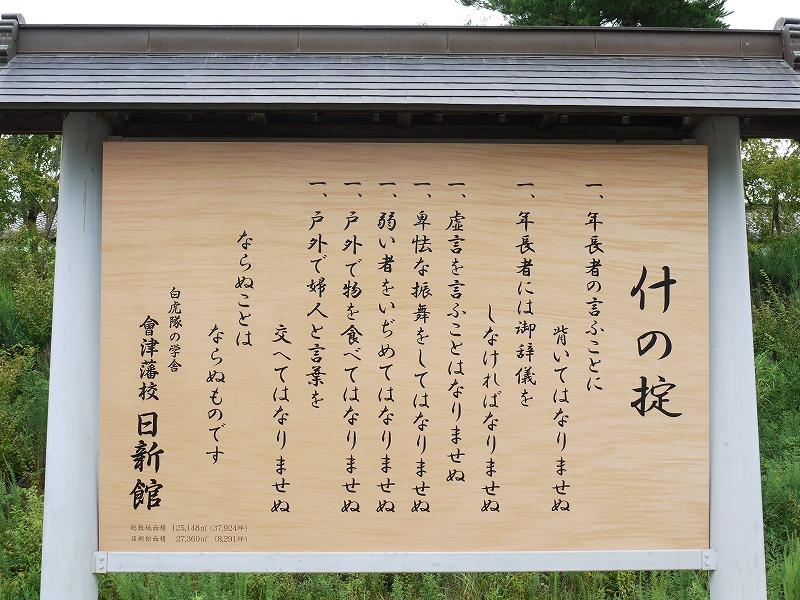 什の掟
一、年長者の言ふことに
背いてはなりませぬ
一、年長者には御辞儀を
しなければなりませぬ
一、虚言を言ふことはなりませぬ
一、卑怯な振舞をしてはなりませぬ
一、弱い者をいぢめてはなりませぬ
一、戸外で物を食べてはなりませぬ
一、戸外で婦人と言葉を
交へてはなりませぬ
ならぬことは
ならぬものです
白虎隊の学舎
會津藩校 日新館
総敷地面積 125,148㎡(37,924坪)
日新館面積 27,360㎡ (8,291坪)